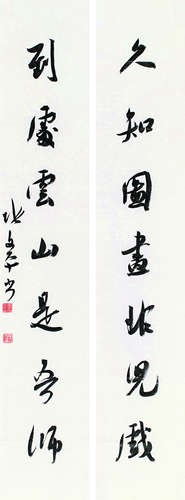 久知圖畫非兒戲
到處雲山是吾師